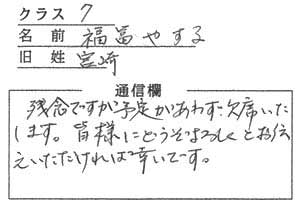 クラス 7
名前 福富やする
旧姓 宮崎
通信欄
残念ですが予定があわず欠席いた
します。皆様にどうぞよろしくとお伝
えいただければ幸いです。